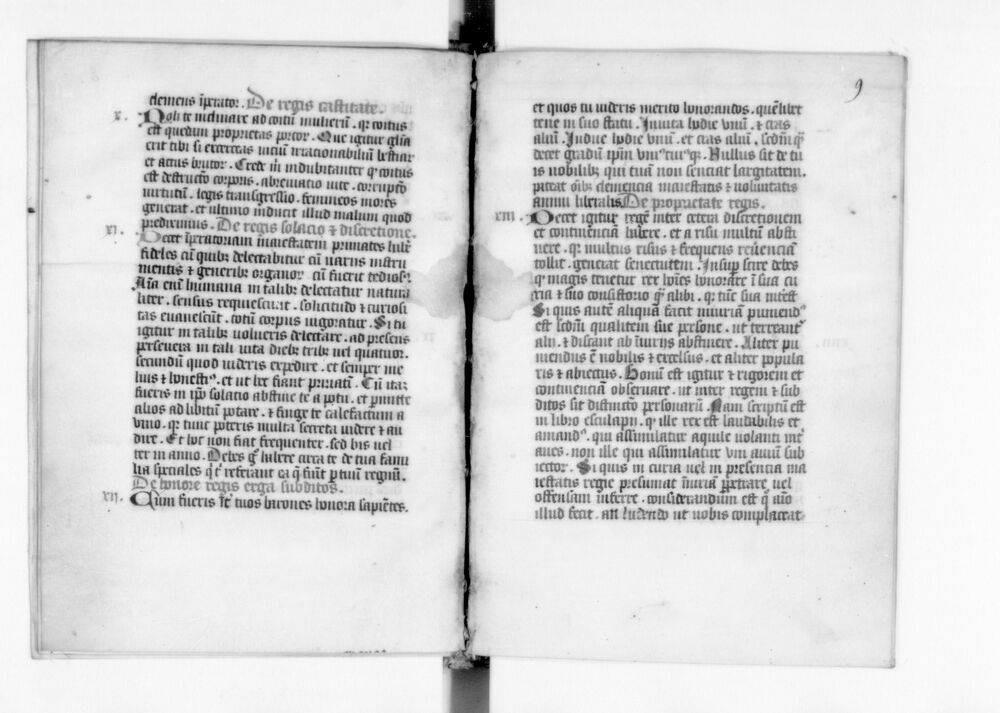 clemens īperator. De regis castitate.
x. Noli te inclinare ad coitū mulierū. qr coitus
est quedam proprietas porcor. Que igitur glīa
erit tibi si exerceas uiciū irracionabiliū bestiar
et actus brutor. Crede m̄ indubitanter qr coitus
est destructō corporis. abreuiatio uite. corrupcō
uirtutū. legis transgressio. femineos mores
generat. et ultimo inducit illud malum quod
prediximus. De regis solacio ⁊ discretione.
xi. Decet īperatoriam maiestatem priuatos hr̄e
fideles cū quibꝫ delectabitur cū uariis instru
mentis ⁊ generibꝫ organor cū fuerit tediosꝰ
Aīa enī humana in talibꝫ delectatur natura
liter. sensus requiescunt. solicitudo ⁊ curiosi
tas euanescūt. totū corpus uigoratur. Si tu
igitur in talibꝫ uolueris delectare. ad plus
perseuera in tali uita diebꝫ tribꝫ uel quatuor.
secundū quod uideris expedire. et semper me
lius ⁊ honestiꝰ. et ut hec fiant priuatī. Cū itaꝫ
fueris in ip̄o solacio abstine te a potu. et pmitte
alios ad libitum potare. ⁊ finge te calefactum a
uino. qr tunc poteris multa secreta uidere ⁊ au
dire. Et hoc non fiat frequenter. sed bis uel
ter in anno. Debes g̊ habere circa te de tua fami
lia speciales qͥ t̄ referant ea q̄ fiūt p tuū regnū.
De honore regis erga subditos.
xii. Cum fueris īt̄ tuos barones honora sapiētes.
9
et quos tu uideris merito honorandos. quēlibet
tene in suo statu. Inuita hodie unū. ⁊ cras
aliū. Indue hodie unū. et cras aliū. scdm qͥ
decet gradū ip̄iꝰ uniꝰcuiꝰqꝫ. Nullus sit de tu
is nobilibꝫ qui tuā non senciat largitatem.
pateat oībꝫ clemencia maiestatis ⁊ uoluntatis
animi liberalis. De proprietate regis.
xiii. Decet igitur regē inter cetera discretionem
et continenciā habere. et a risu multū absti
nere. qr multus risus ⁊ frequens reuēenciā
tollit. generat senectutem. Insup scire debes
qͥ magis tenetur rex hoīes honorare ī sua cu
ria ⁊ suo consistorio qͣ alibi. qr tūc sua īterest
Si quis autē aliquā facit iniuriā puniendꝰ
est scdm qualitatem sue persone. ut terreantᷣ
alii. ⁊ discant ab īiuriis abstinere. Aliter pu
niendus ē nobilis ⁊ excelsus. et aliter popula
ris ⁊ abiectus. Bonum est igitur ⁊ rigorem et
continenciā obseruare. ut inter regem ⁊ sub
ditos sit distinctō personarū. Nam scriptū est
in libro esculapii. qͥ ille rex est laudabilis et
amandꝰ. qui assimilatur aquile uolanti īnt̄
aues. non ille qui assimilatur uni auiū sub
iector. Si quis in curia uel in presencia ma
iestatis regie presumat īiuriā ppetrare uel
offensam inferre. considerandum est qͦ aīo
illud fecit. an ludendo ut uobis complaceat